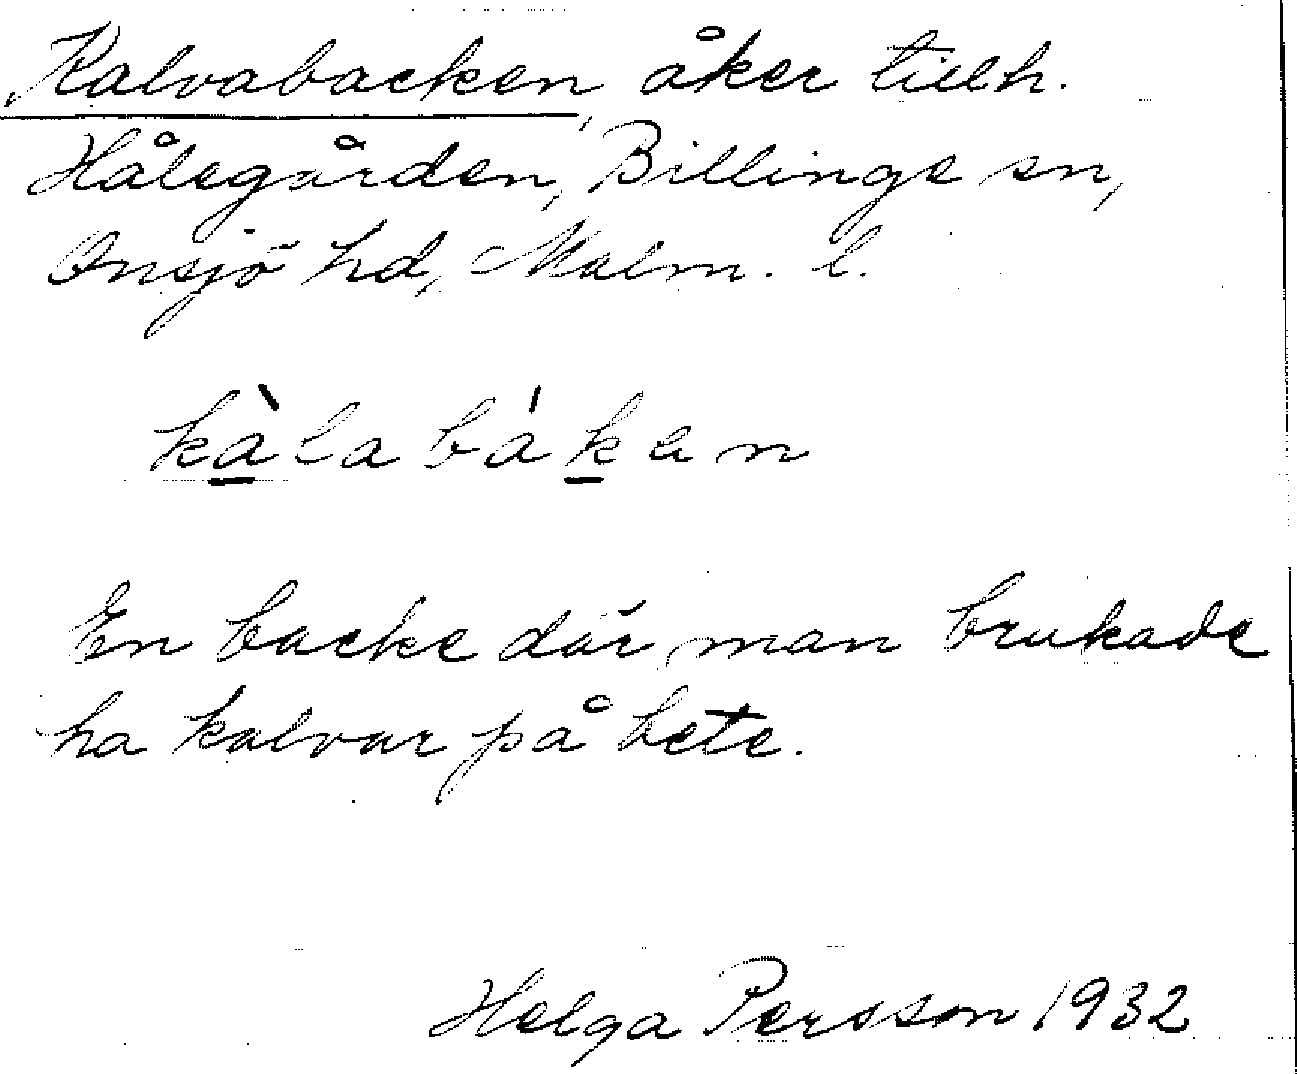 Kalvabacken, åker tillh.
Hålegården, Billinge sn,
Onsjö hd, Malm. l.
kàlabáken
En backe där man brukade
ha kalvar på bete.
Helga Persson 1932